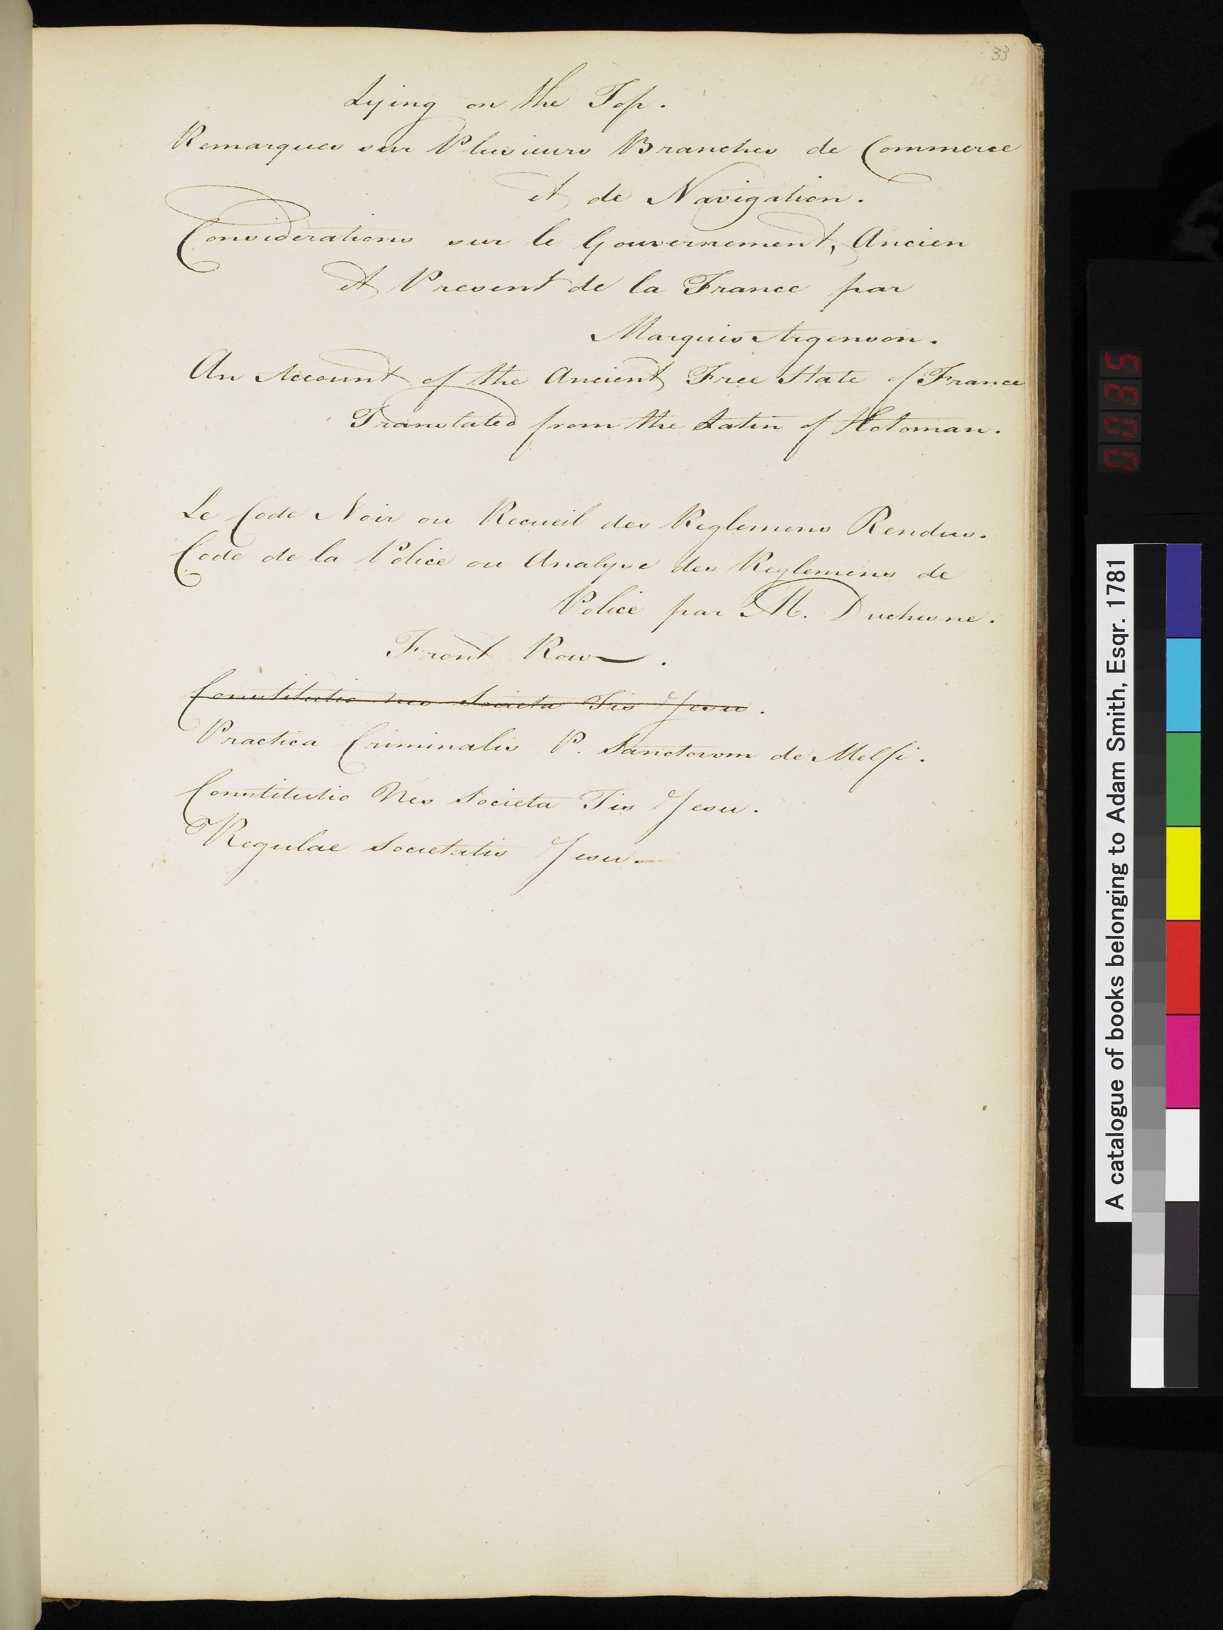 33
Lying on the Top.
Remarques sur Plusieurs Branches de Commerce
et de Navigation.
Considerations sur le Gouvernement, Ancien
et Present de la France par
Marquis Argenson.
An Account of the Ancient Free State of France
Translated from the Latin of Hotoman.
Le Code Noir ou Recueil des Reglemens Rendus.
Code de la Police ou Analyse des Reglemens de
Police par M. Duchesne.
Front Row.
Constitutio nes Societa Tis Jesu.
Practica Criminalis P. Sanctorom de Melfi.
Constitutio Nes Societa Tis Jesu.
Regulae Societatis Jesu
0035
A catalogue of books belonging to Adam Smith, Esqr. 1781